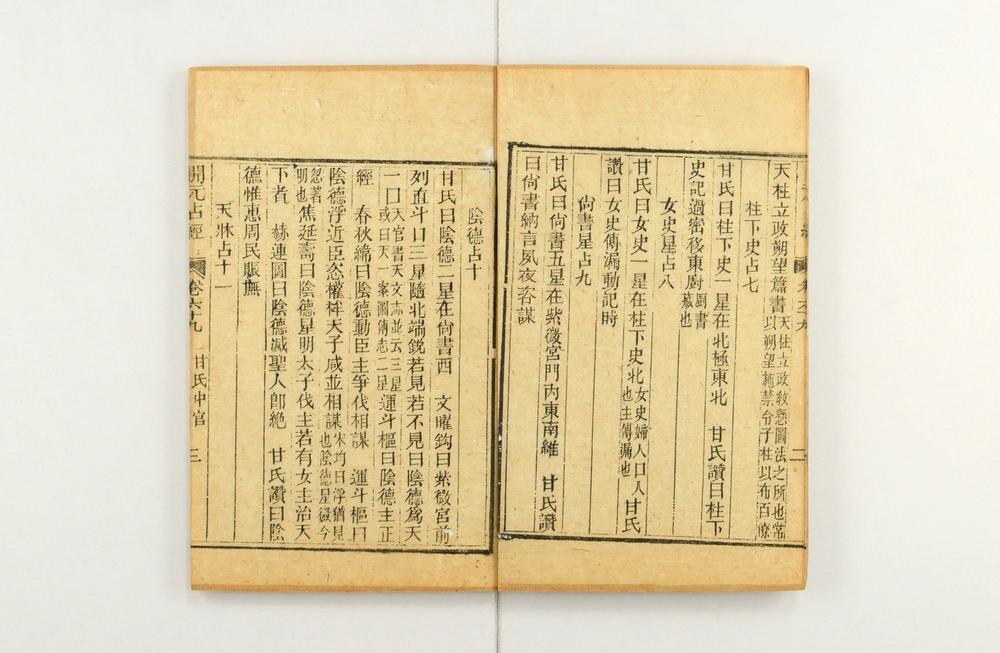 二
天柱立政朔望簷書天柱立政敎懸圖法之所也常以朔望施禁令于柱以布百僚
柱下史占七
甘氏曰柱下史一星在北極東北　甘氏讚曰柱下
史記過密移東廚廚書藏也
女史星占八
甘氏曰女史一星在柱下史北女史婦人口人也主傳漏也甘氏
讚曰女史傳漏動記時
尙書星占九
甘氏曰尙書五星在紫微宮門內東南維　甘氏讚
曰尙書納言夙夜咨謀
陰德占十
甘氏曰陰德二星在尙書西　文曜鈎曰紫微宮前
列直斗口三星隨北端銳若見若不見曰陰德爲天
一口天官書天文志並云三星或曰天一案圖傳志二星運斗樞曰陰德主正
經　春秋緯曰陰德動臣主爭伐相謀　運斗樞曰
陰德浮近臣恣權牂天子咸並相謀宋均曰浮猶見也陰德星微今
忽著明也焦延壽曰陰德星明太子伐主若有女主治天
下者　赫連圖曰陰德滅聖人卽絶　甘氏讚曰陰
德惟惠周民賑無
天牀占十一
開元占經　卷六十九　甘氏中官　三